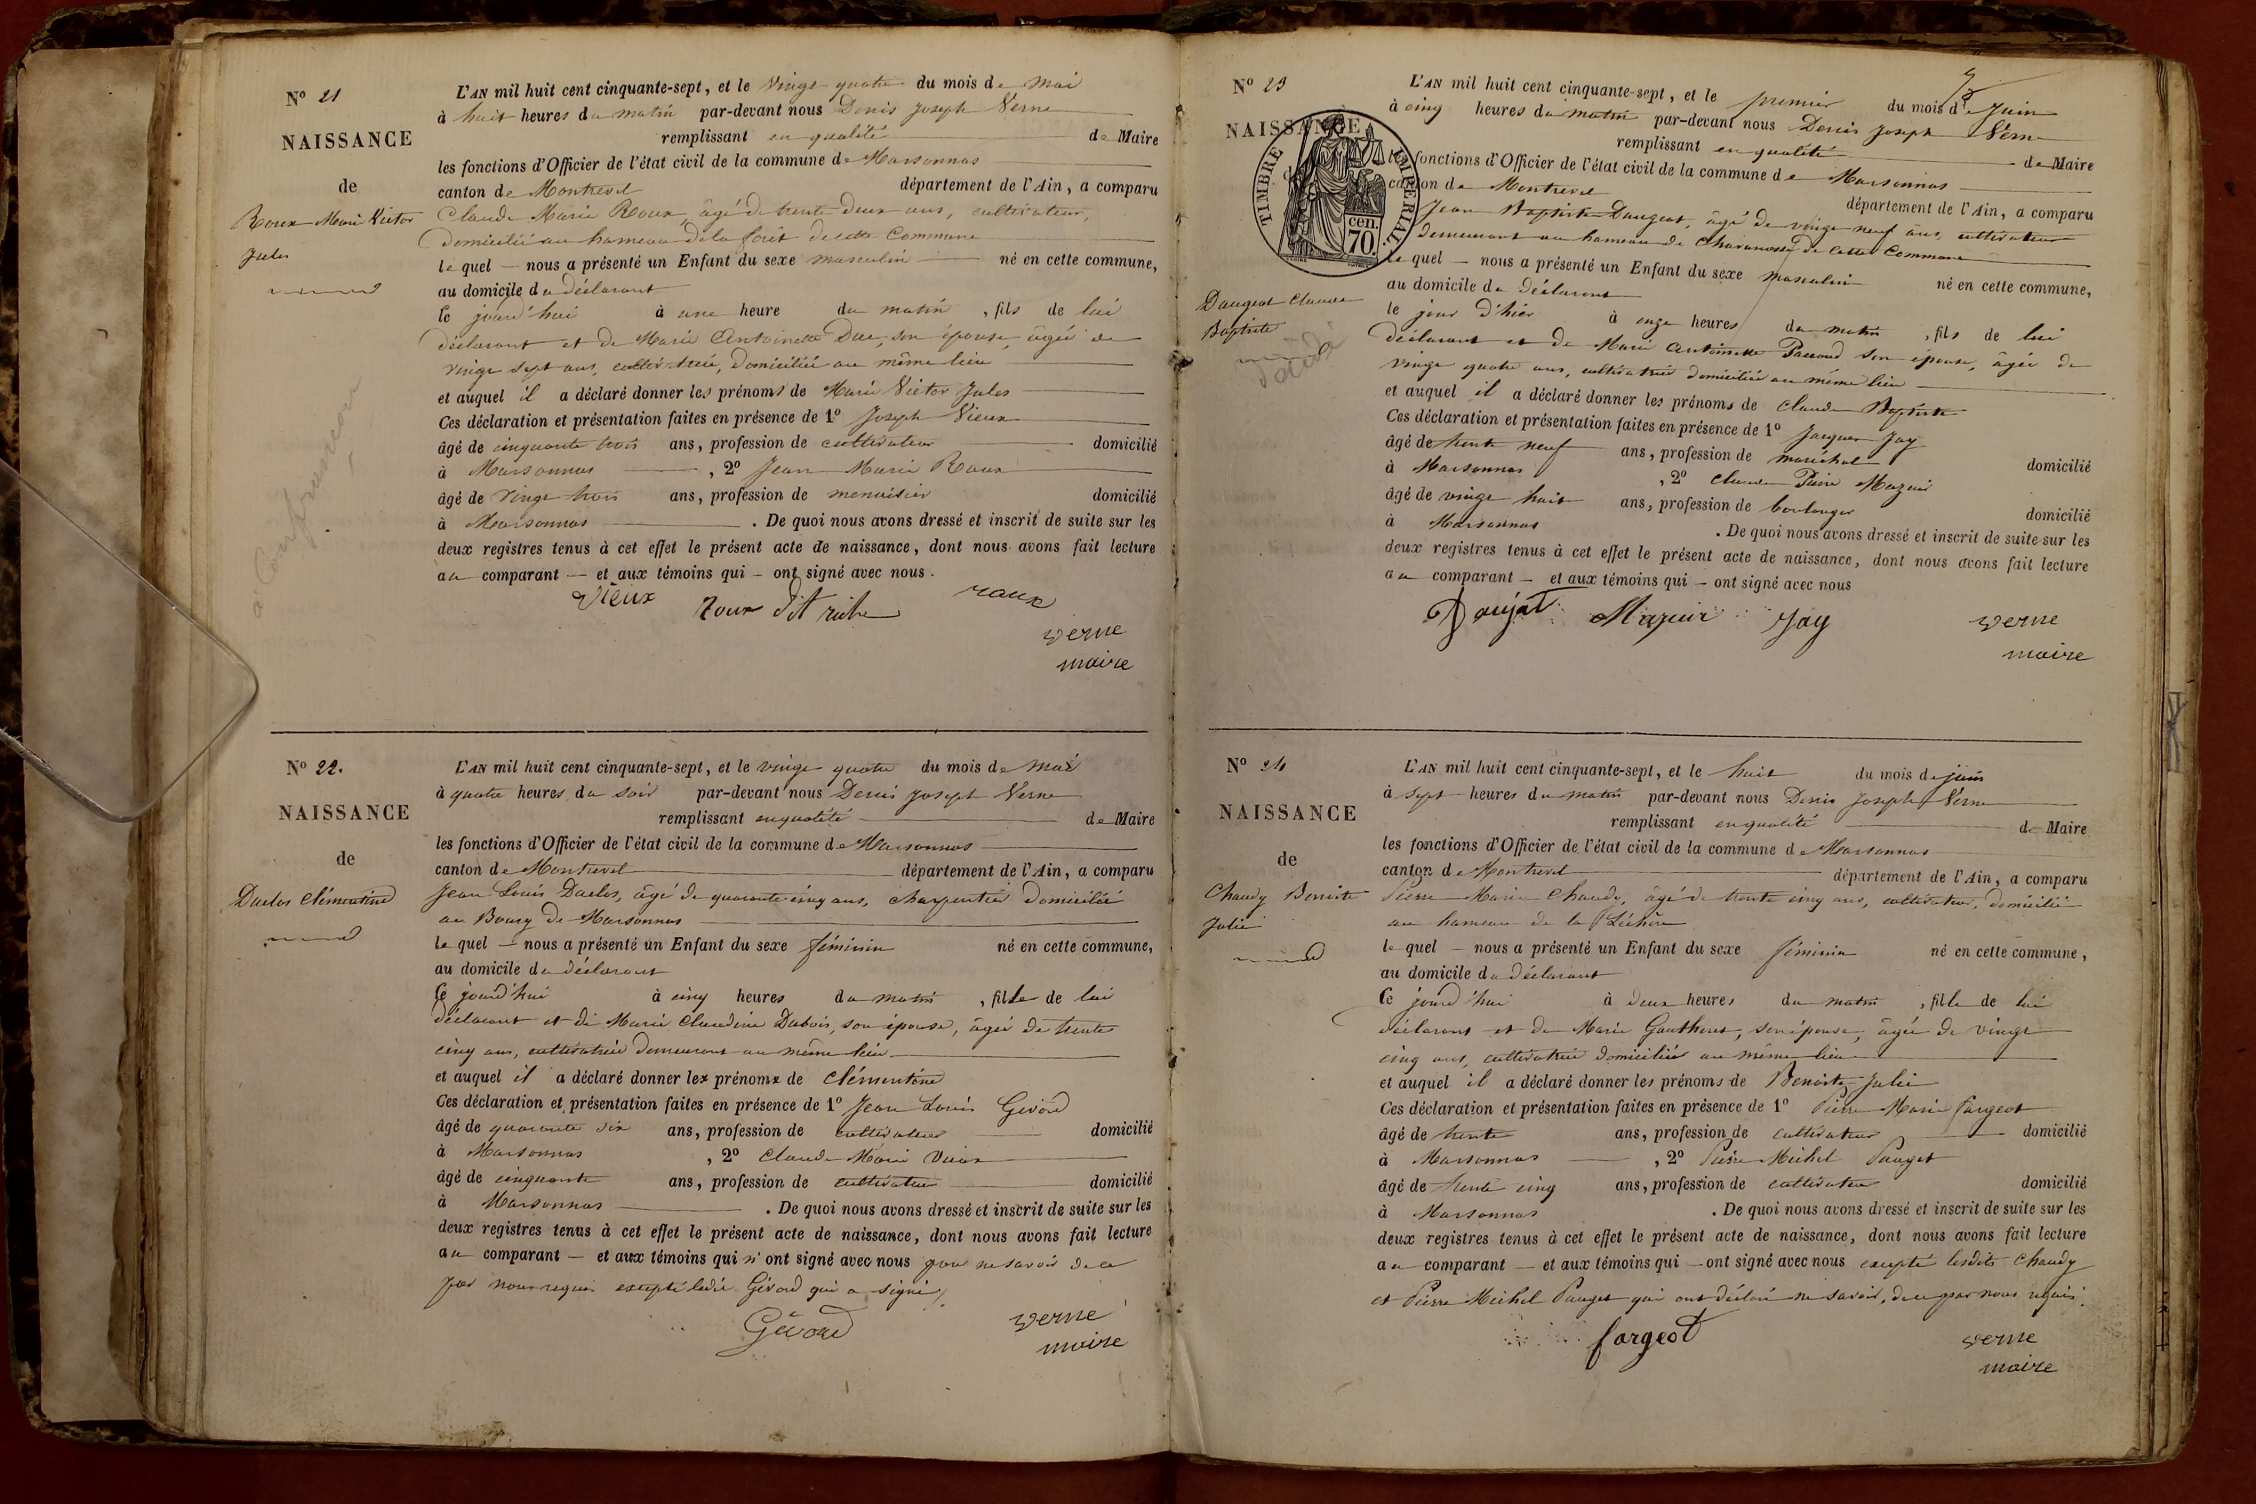 N° 21
NAISSANCE
de
Roux Marie Victor
Jules
L'AN mil huit cent cinquante-sept, et le vingt quatre du mois de Mai
à huit heures du matin par-devant nous Denis Joseph Verne
remplissant en qualité de Maire
les fonctions d'Officier de l'état civil de la commune de Marsonnas
canton de Montrevel département de l'Ain, a comparu
Claude Marie Roux, âgé de trente deux ans, cultivateur,
domicilié au hameau de la forêt de cette Commune
le quel — nous a présenté un Enfant du sexe masculin né en cette commune,
au domicile du déclarant
Ce jourd'hui à une heure du matin, fils de lui
déclarant et de Marie Antoinette Duc, son épouse, âgée de
vingt sept ans, cultivatrice, domiciliée au même lieu
et auquel il a déclaré donner les prénoms de Marie Victor Jules
Ces déclaration et présentation faites en présence de 1° Joseph Vieux
âgé de cinquante trois ans, profession de cultivateur domicilié
à Marsonnas, 2° Jean Marie Roux
âgé de vingt trois ans, profession de menuisier domicilié
à Marsonnas. De quoi nous avons dressé et inscrit de suite sur les
deux registres tenus à cet effet le présent acte de naissance, dont nous avons fait lecture
au comparant — et aux témoins qui — ont signé avec nous.
Vieux roux dit riche roux
verne
maire
N° 22.
NAISSANCE
de
Duclos Clémentine
L'AN mil huit cent cinquante-sept, et le vingt quatre du mois de Mai
à quatre heures du soir par-devant nous Denis Joseph Verne
remplissant en qualité de Maire
les fonctions d'Officier de l'état civil de la commune de Marsonnas
canton de Montrevel département de l'Ain, a comparu
Jean Louis Duclos, âgé de quarante cinq ans, charpentier domicilié
au Bourg de Marsonnas
le quel — nous a présenté un Enfant du sexe féminin né en cette commune,
au domicile du déclarant
Ce jourd'hui à cinq heures du matin, fille de lui
déclarant et de Marie Claudine Dubois, son épouse, âgée de trente
cinq ans, cultivatrice demeurant au même lieu
et auquel il a déclaré donner les prénoms de Clémentine
Ces déclaration et présentation faites en présence de 1° Jean Louis Gévord
âgé de quarante six ans, profession de cultivateur domicilié
à Marsonnas, 2° Claude Marie
âgé de cinquante ans, profession de cultivateur domicilié
à Marsonnas. De quoi nous avons dressé et inscrit de suite sur les
deux registres tenus à cet effet le présent acte de naissance, dont nous avons fait lecture
au comparant — et aux témoins qui n'ont signé avec nous pour ne savoir de ce
par nous requis excepté ledit Gévord qui a signé
Gévord
verne
maire
N° 23
NAISSANCE
de
TIMBRE IMPERIAL.
70 cen.
Daugeat Claude
Baptiste
L'AN mil huit cent cinquante-sept, et le premier du mois de Juin
à cinq heures du matin par-devant nous Denis Joseph Verne
remplissant en qualité de Maire
les fonctions d'Officier de l'état civil de la commune de Marsonnas
canton de Montrevel département de l'Ain, a comparu
Jean Baptiste Daugeat, âgé de vingt neuf ans, cultivateur
demeurant au hameau de de cette Commune
le quel — nous a présenté un Enfant du sexe masculin né en cette commune,
au domicile du déclarant
le jour d'hier à onze heures du matin, fils de lui
déclarant et de Marie Antoinette Paccoud son épouse, âgée de
vingt quatre ans, cultivatrice domiciliée au même lieu
et auquel il a déclaré donner les prénoms de Claude Baptiste
Ces déclaration et présentation faites en présence de 1° Jacques Jay
âgé de trente neuf ans, profession de maréchal domicilié
à Marsonnas, 2° Claude Pierre Mazuir
âgé de vingt huit ans, profession de boulanger domicilié
à Marsonnas. De quoi nous avons dressé et inscrit de suite sur les
deux registres tenus à cet effet le présent acte de naissance, dont nous avons fait lecture
au comparant — et aux témoins qui — ont signé avec nous
Daujat Mazuir Jay verne
maire
N° 24
NAISSANCE
de
Chaudy Benoite
Julie
L'AN mil huit cent cinquante-sept, et le huit du mois de juin
à sept heures du matin par-devant nous Denis Joseph Verne
remplissant en qualité de Maire
les fonctions d'Officier de l'état civil de la commune de Marsonnas
canton de Montrevel département de l'Ain, a comparu
Pierre Marie Chaudy, âgé de trente cinq ans, cultivateur, domicilié
au hameau de la
le quel — nous a présenté un Enfant du sexe féminin né en cette commune,
au domicile du déclarant
Ce jourd'hui à deux heures du matin, fille de lui
déclarant et de Marie Gautheret, son épouse, âgée de vingt
cinq ans, cultivatrice domiciliée au même lieu
et auquel il a déclaré donner les prénoms de Benoite Julie
Ces déclaration et présentation faites en présence de 1° Pierre Marie Fargeot
âgé de trente ans, profession de cultivateur domicilié
à Marsonnas, 2° Pierre Michel Pauget
âgé de trente cinq ans, profession de cultivateur domicilié
à Marsonnas. De quoi nous avons dressé et inscrit de suite sur les
deux registres tenus à cet effet le présent acte de naissance, dont nous avons fait lecture
au comparant — et aux témoins qui — ont signé avec nous excepté lesdits Chaudy
et Pierre Michel Pauget qui ont déclaré ne savoir, de ce par nous requis.
fargeot verne
maire